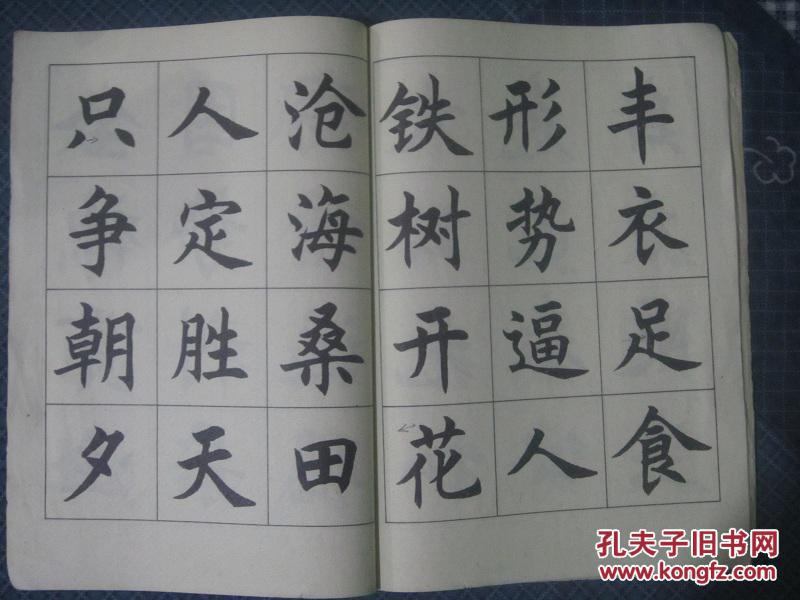 丰衣足食
形势逼人
铁树开花
沧海桑田
人定胜天
只争朝夕
孔夫子旧书网
www.kongfz.com